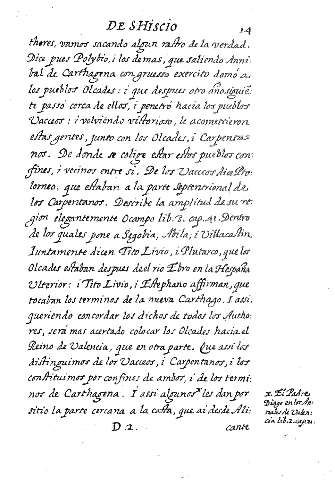 DE SHISCIO 14
thores, vamos sacando algun rastro de la verdad.
Dize pues Polybio, i los demas, que saliendo Anni
bal de Carthagena con gruesso exercito domó a
los pueblos Olcades: i que despues otro año siguiẽ
te passó cerca de ellos, i penetró hacia los pueblos
Vacceos: i volviendo victorioso, le acometieron
estas gentes, junto con los Olcades, i Carpenta-
nos. De donde se colige estar estos pueblos con-
fines, i vecinos entre si. De los Vacceos dice Pto-
lomeo, que estaban a la parte Septentrional de
los Carpentanos. Describe la amplitud de su re-
gion elegantemente Ocampo lib. 2. cap. 41. Dentro
de los quales pone a Segobia, Abila; i Villacastin.
Iuntamente dicen Tito Livio, i Plutarco, que los
Olcades estaban despues de el rio Ebro en la Hespaña
Ulterior: i Tito Livio, i Estephano affirman, que
tocaban los terminos de la nueva Carthago. I assi
queriendo concordar los dichos de todos los Autho-
res, será mas acertado colocar los Olcades hacia el
Reino de Valencia, que en otra parte. Que assi los
distinguimos de los Vacceos, i Carpentanos, i los
constituimos por confines de ambos, i de los termi-
nos de Carthagena. I assi algunos les dan por
sitio la parte cercana a la costa, que ai desde Ali-
D 2. cante
x. El Padre
Diago en los An-
nales de Valen-
cia lib. 2. cap.